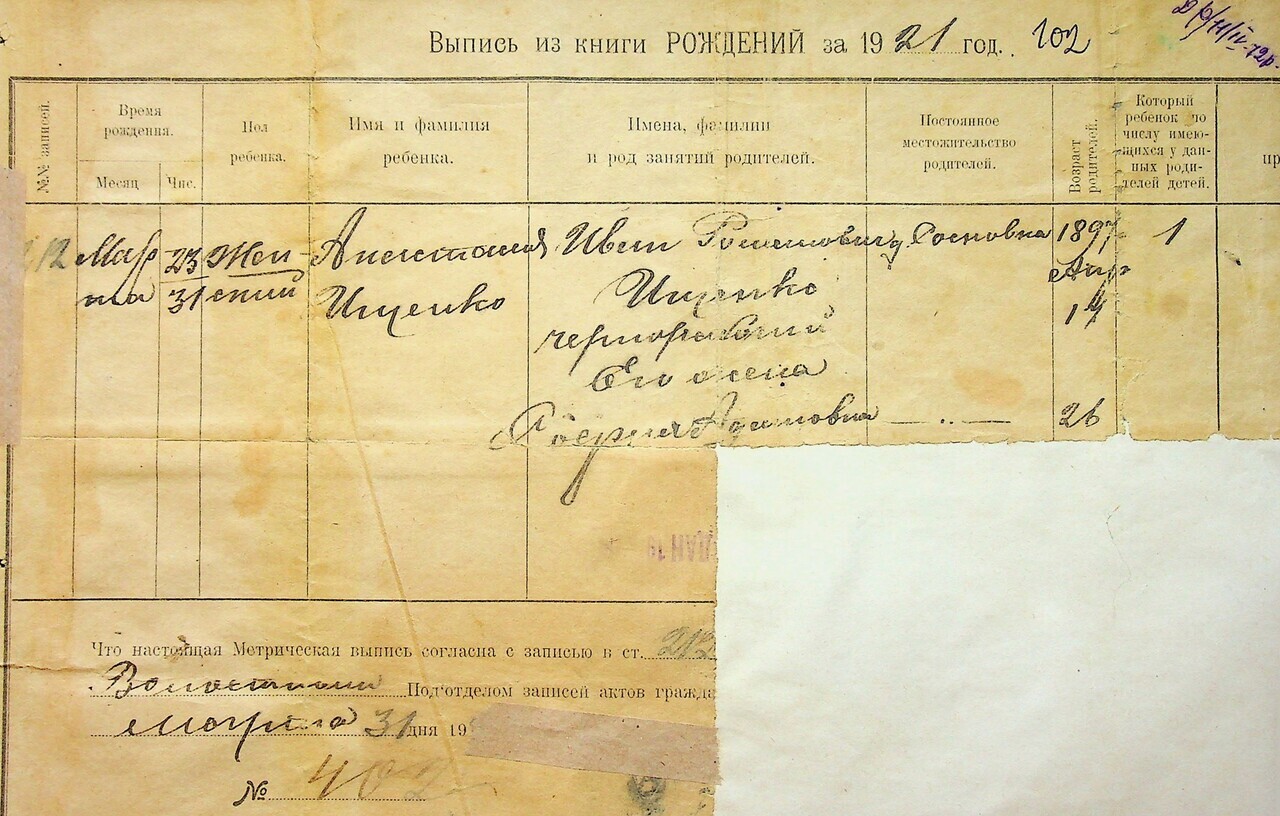 Выпись из книги РОЖДЕНИЙ за 1921 год. 102
№№ записей.
Время
рождения.
Месяц
Чис.
Пол
ребенка.
Имя и фамилия
ребенка.
Имена, фамилии
и род занятий родителей.
Постоянное
местожительство
родителей.
Возраст
родителей.
Который
ребенок по
числу имею-
щихся у дан-
ных роди-
телей детей.
пр
212 Мар 23 Жен- Анастасия Иван д. Сосновка 1897 1
та 31 ский Ищенко Ищенко Апр
чернорабочий 17
Его жена
Адамовна — „ — 26
Что настоящая Метрическая выпись согласна с записью в ст. 212
Волостным Под'отделом записей актов гражда
Марта 31 дня 19
№ 402